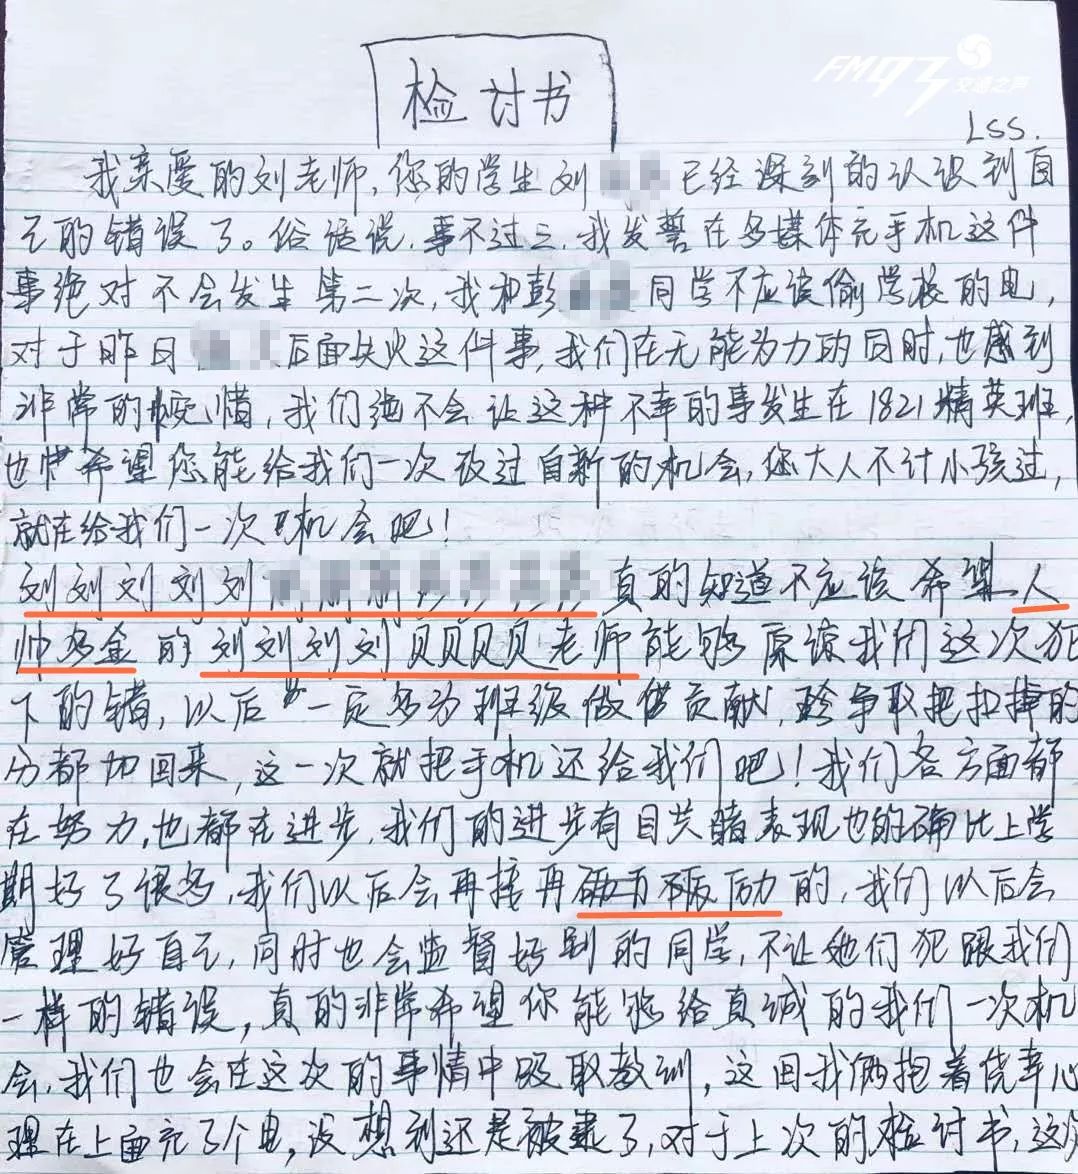 FM93
交通之声
检讨书
LSS.
我亲爱的刘老师,您的学生刘 已经深刻的认识到自
己的错误了。俗话说,事不过三,我发誓在多媒体充手机这件
事绝对不会发生第二次,我和彭 同学不应该偷学校的电,
对于昨日 后面失火这件事,我们在无能为力的同时,也感到
非常的惋惜,我们绝不会让这种不幸的事发生在1821精英班,
也希望您能给我们一次改过自新的机会,您大人不计小孩过,
就在给我们一次机会吧!
刘刘刘刘刘 真的知道不应该希望人
帅多金的刘刘刘刘贝贝贝贝老师能够原谅我们这次犯
下的错,以后一定多为班级做贡献,争取把扣掉的
分都加回来,这一次就把手机还给我们吧!我们各方面都
在努力,也都在进步,我们的进步有目共睹表现也的确比上学
期好了很多,我们以后会再接再 的,我们以后会
管理好自己,同时也会监督好别的同学,不让他们犯跟我们
一样的错误,真的非常希望你能够给真诚的我们一次机
会,我们也会在这次的事情中吸取教训,这回我俩抱着侥幸心
理在上面充了个电,没想到还是被逮了,对于上次的检讨书,这次